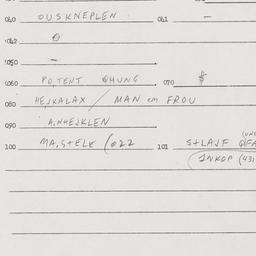 040 OUSKNEPLEN 041 –
042 0
050 –
060 POTENT ØHUNG 070 $
080 HEJKALAX / MAN en FROU
090 A.NHEJKLEN
100 MA.STELK (022 101 STLAJF
INKOP (431